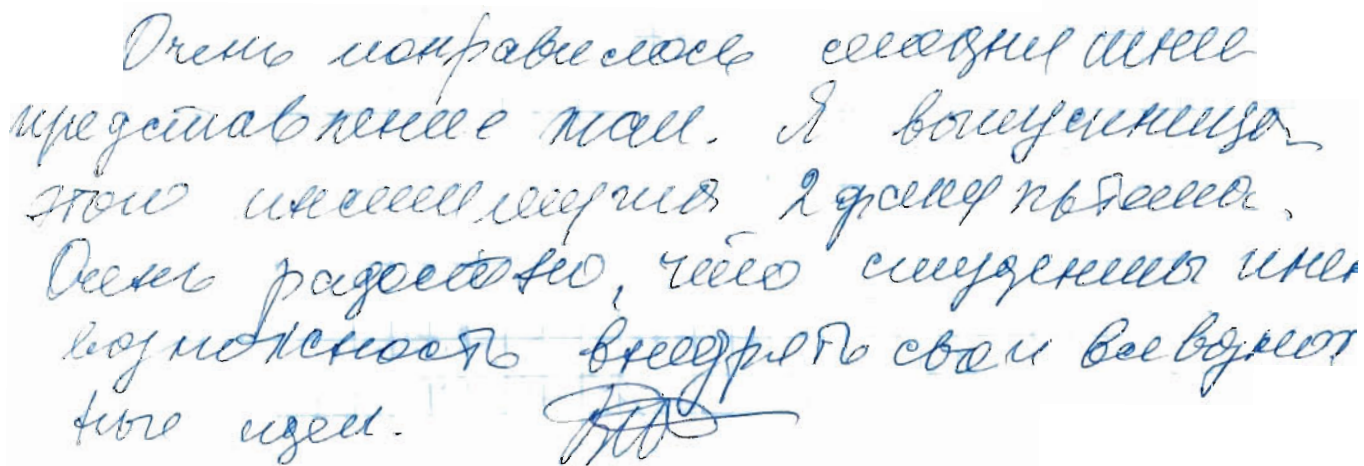 Очень понравилось сегодняшнее
представление май. Я выпускница
этого института 2 факультета.
Очень радостно, что студенты име
возможность внедрять свои всевозмож
ные идеи.